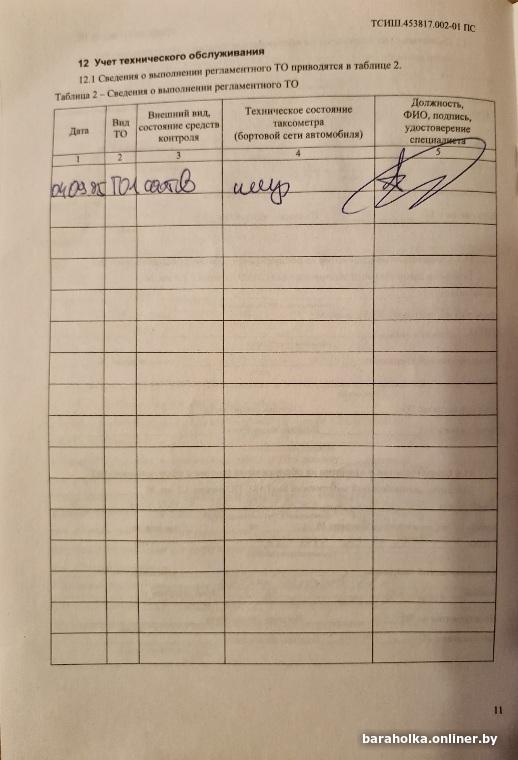 ТСИШ.453817.002-01 ПС
12 Учет технического обслуживания
12.1 Сведения о выполнении регламентного ТО приводятся в таблице 2.
Таблица 2 – Сведения о выполнении регламентного ТО
Дата
Вид
ТО
Внешний вид,
состояние средств
контроля
Техническое состояние
таксометра
(бортовой сети автомобиля)
Должность,
ФИО, подпись,
удостоверение
специалиста
1 2 3 4 5
ТО1 соотв
11
baraholka.onliner.by